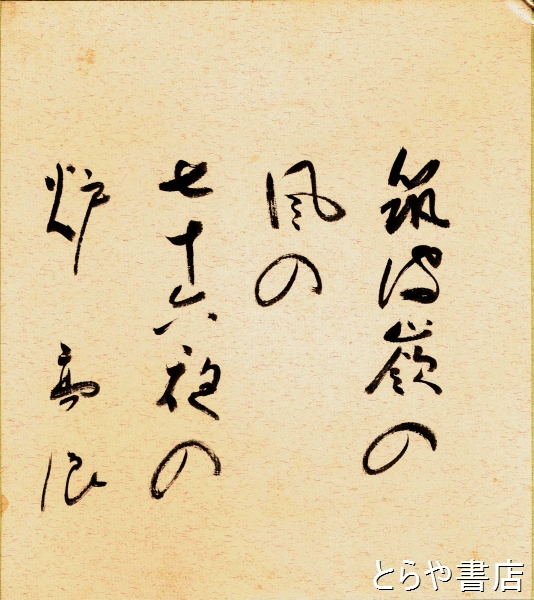 筑波嶺の
風の
七十六夜の
炉
青浪
とらや書店